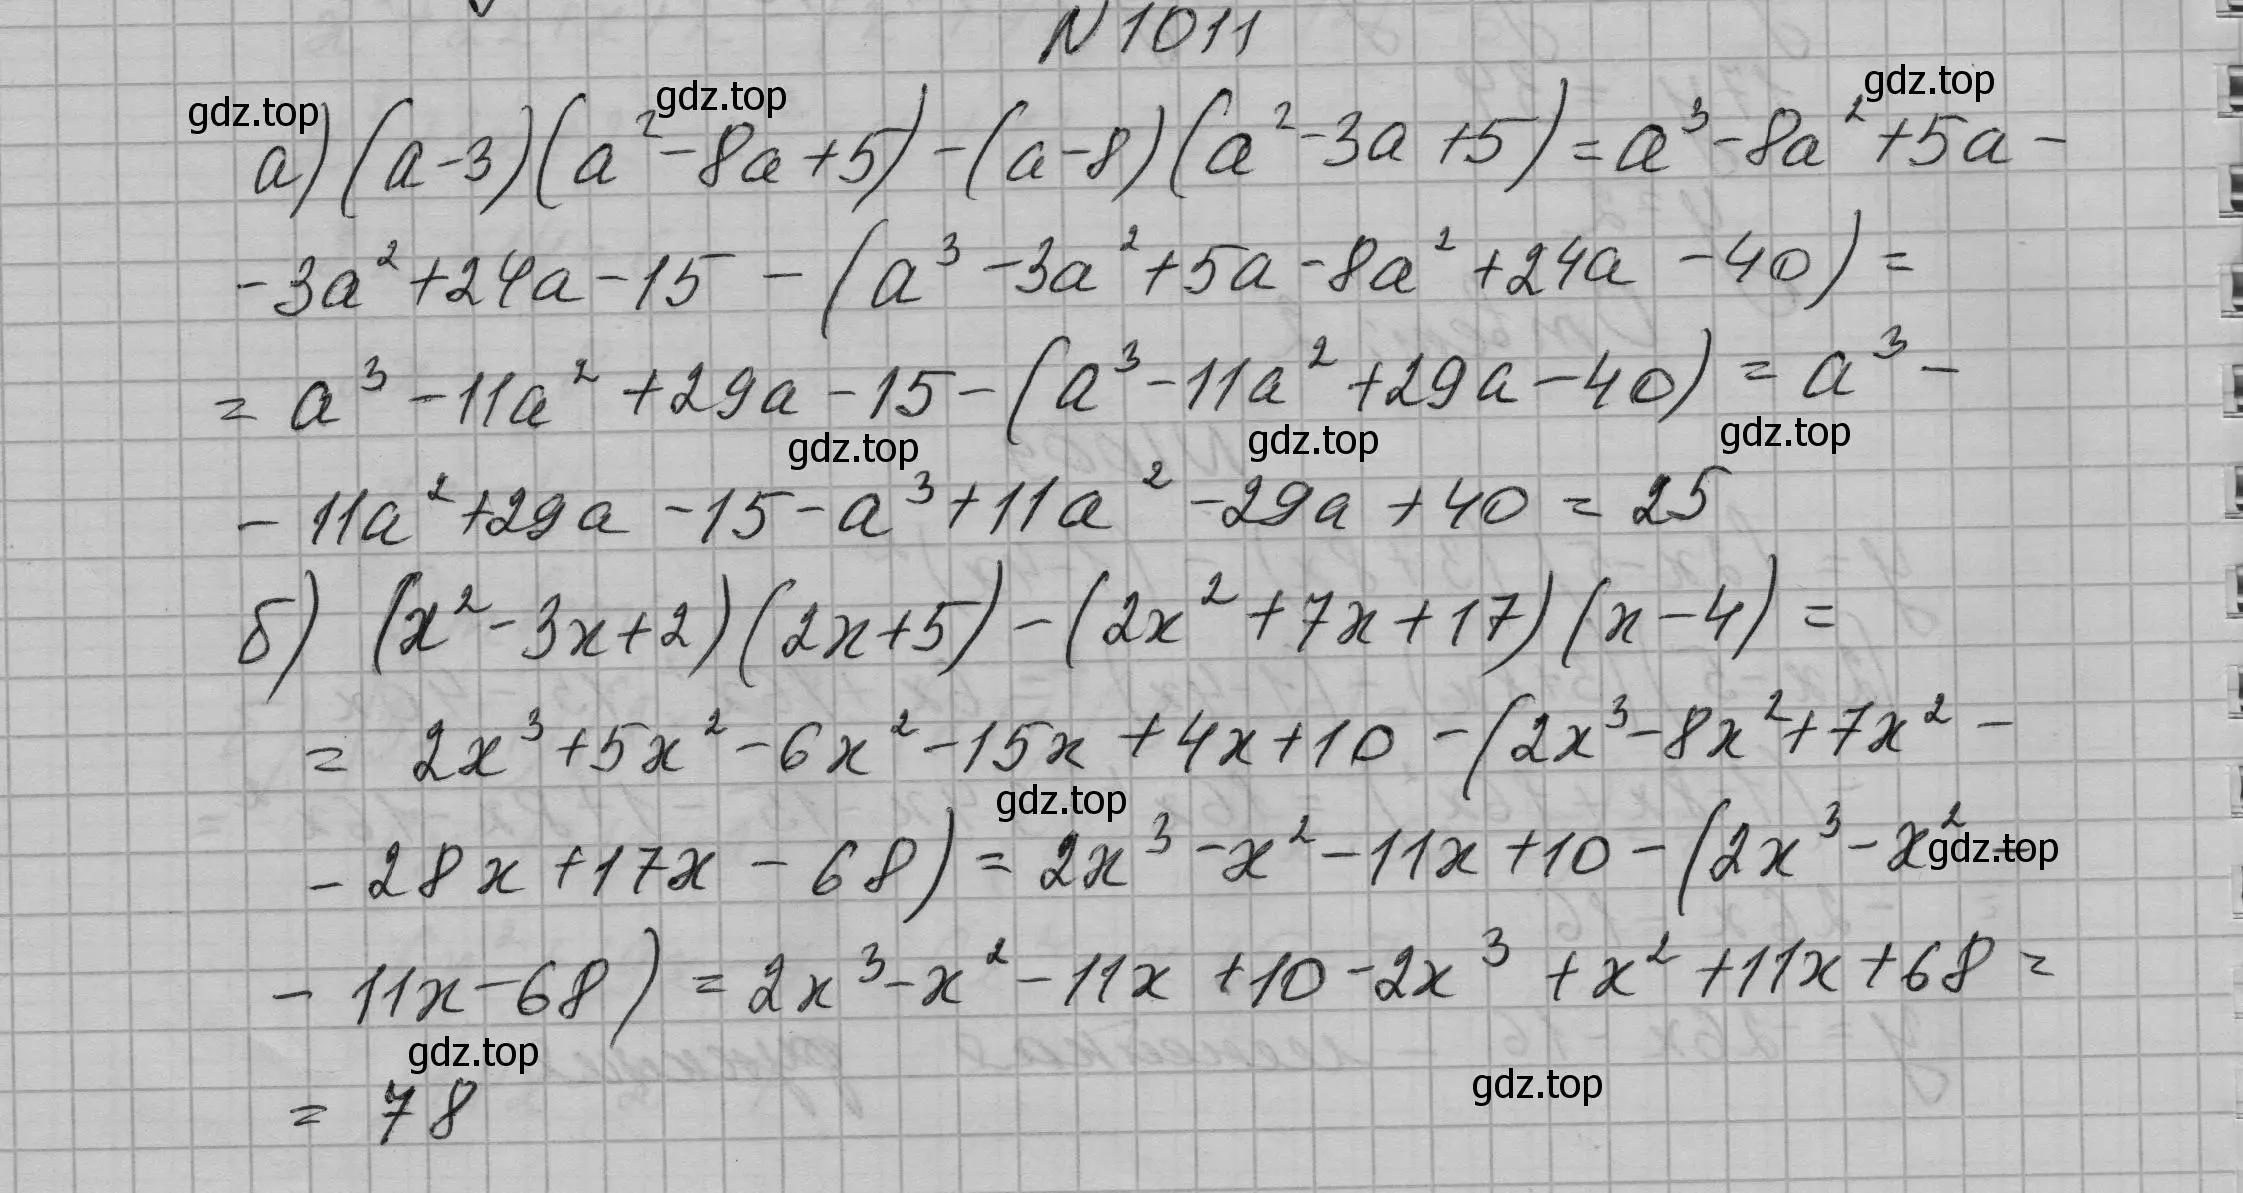 N 1011
gdz.top gdz.top gdz.top
а) (a-3)(a²-8a+5)-(a-8)(a²-3a+5)=a³-8a²+5a-
-3a²+24a-15-(a³-3a²+5a-8a²+24a-40)=
=a³-11a²+29a-15-(a³-11a²+29a-40)=a³-
gdz.top gdz.top gdz.top
-11a²+29a-15-a³+11a²-29a+40=25
б) (x²-3x+2)(2x+5)-(2x²+7x+17)(x-4)=
=2x³+5x²-6x²-15x+4x+10-(2x³-8x²+7x²-
gdz.top
-28x+17x-68)=2x³-x²-11x+10-(2x³-x²-
gdz.top
-11x-68)=2x³-x²-11x+10-2x³+x²+11x+68=
gdz.top gdz.top
=78